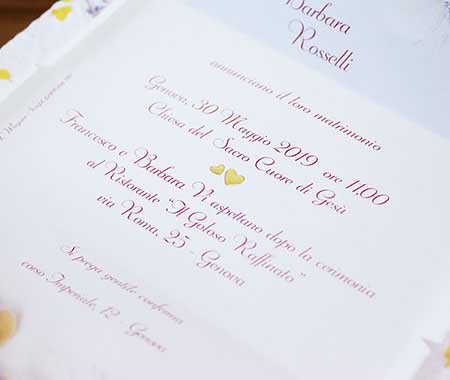 Barbara
Rosselli
annunciano il loro matrimonio
Genova, 30 Maggio 2019 ore 11.00
Chiesa del Sacro Cuore di Gesù
Francesco e Barbara Vi aspettano dopo la cerimonia
al Ristorante "Il Goloso Raffinato"
via Roma, 25 - Genova
Si prega gentile conferma
corso Imperiale, 12 - Genova